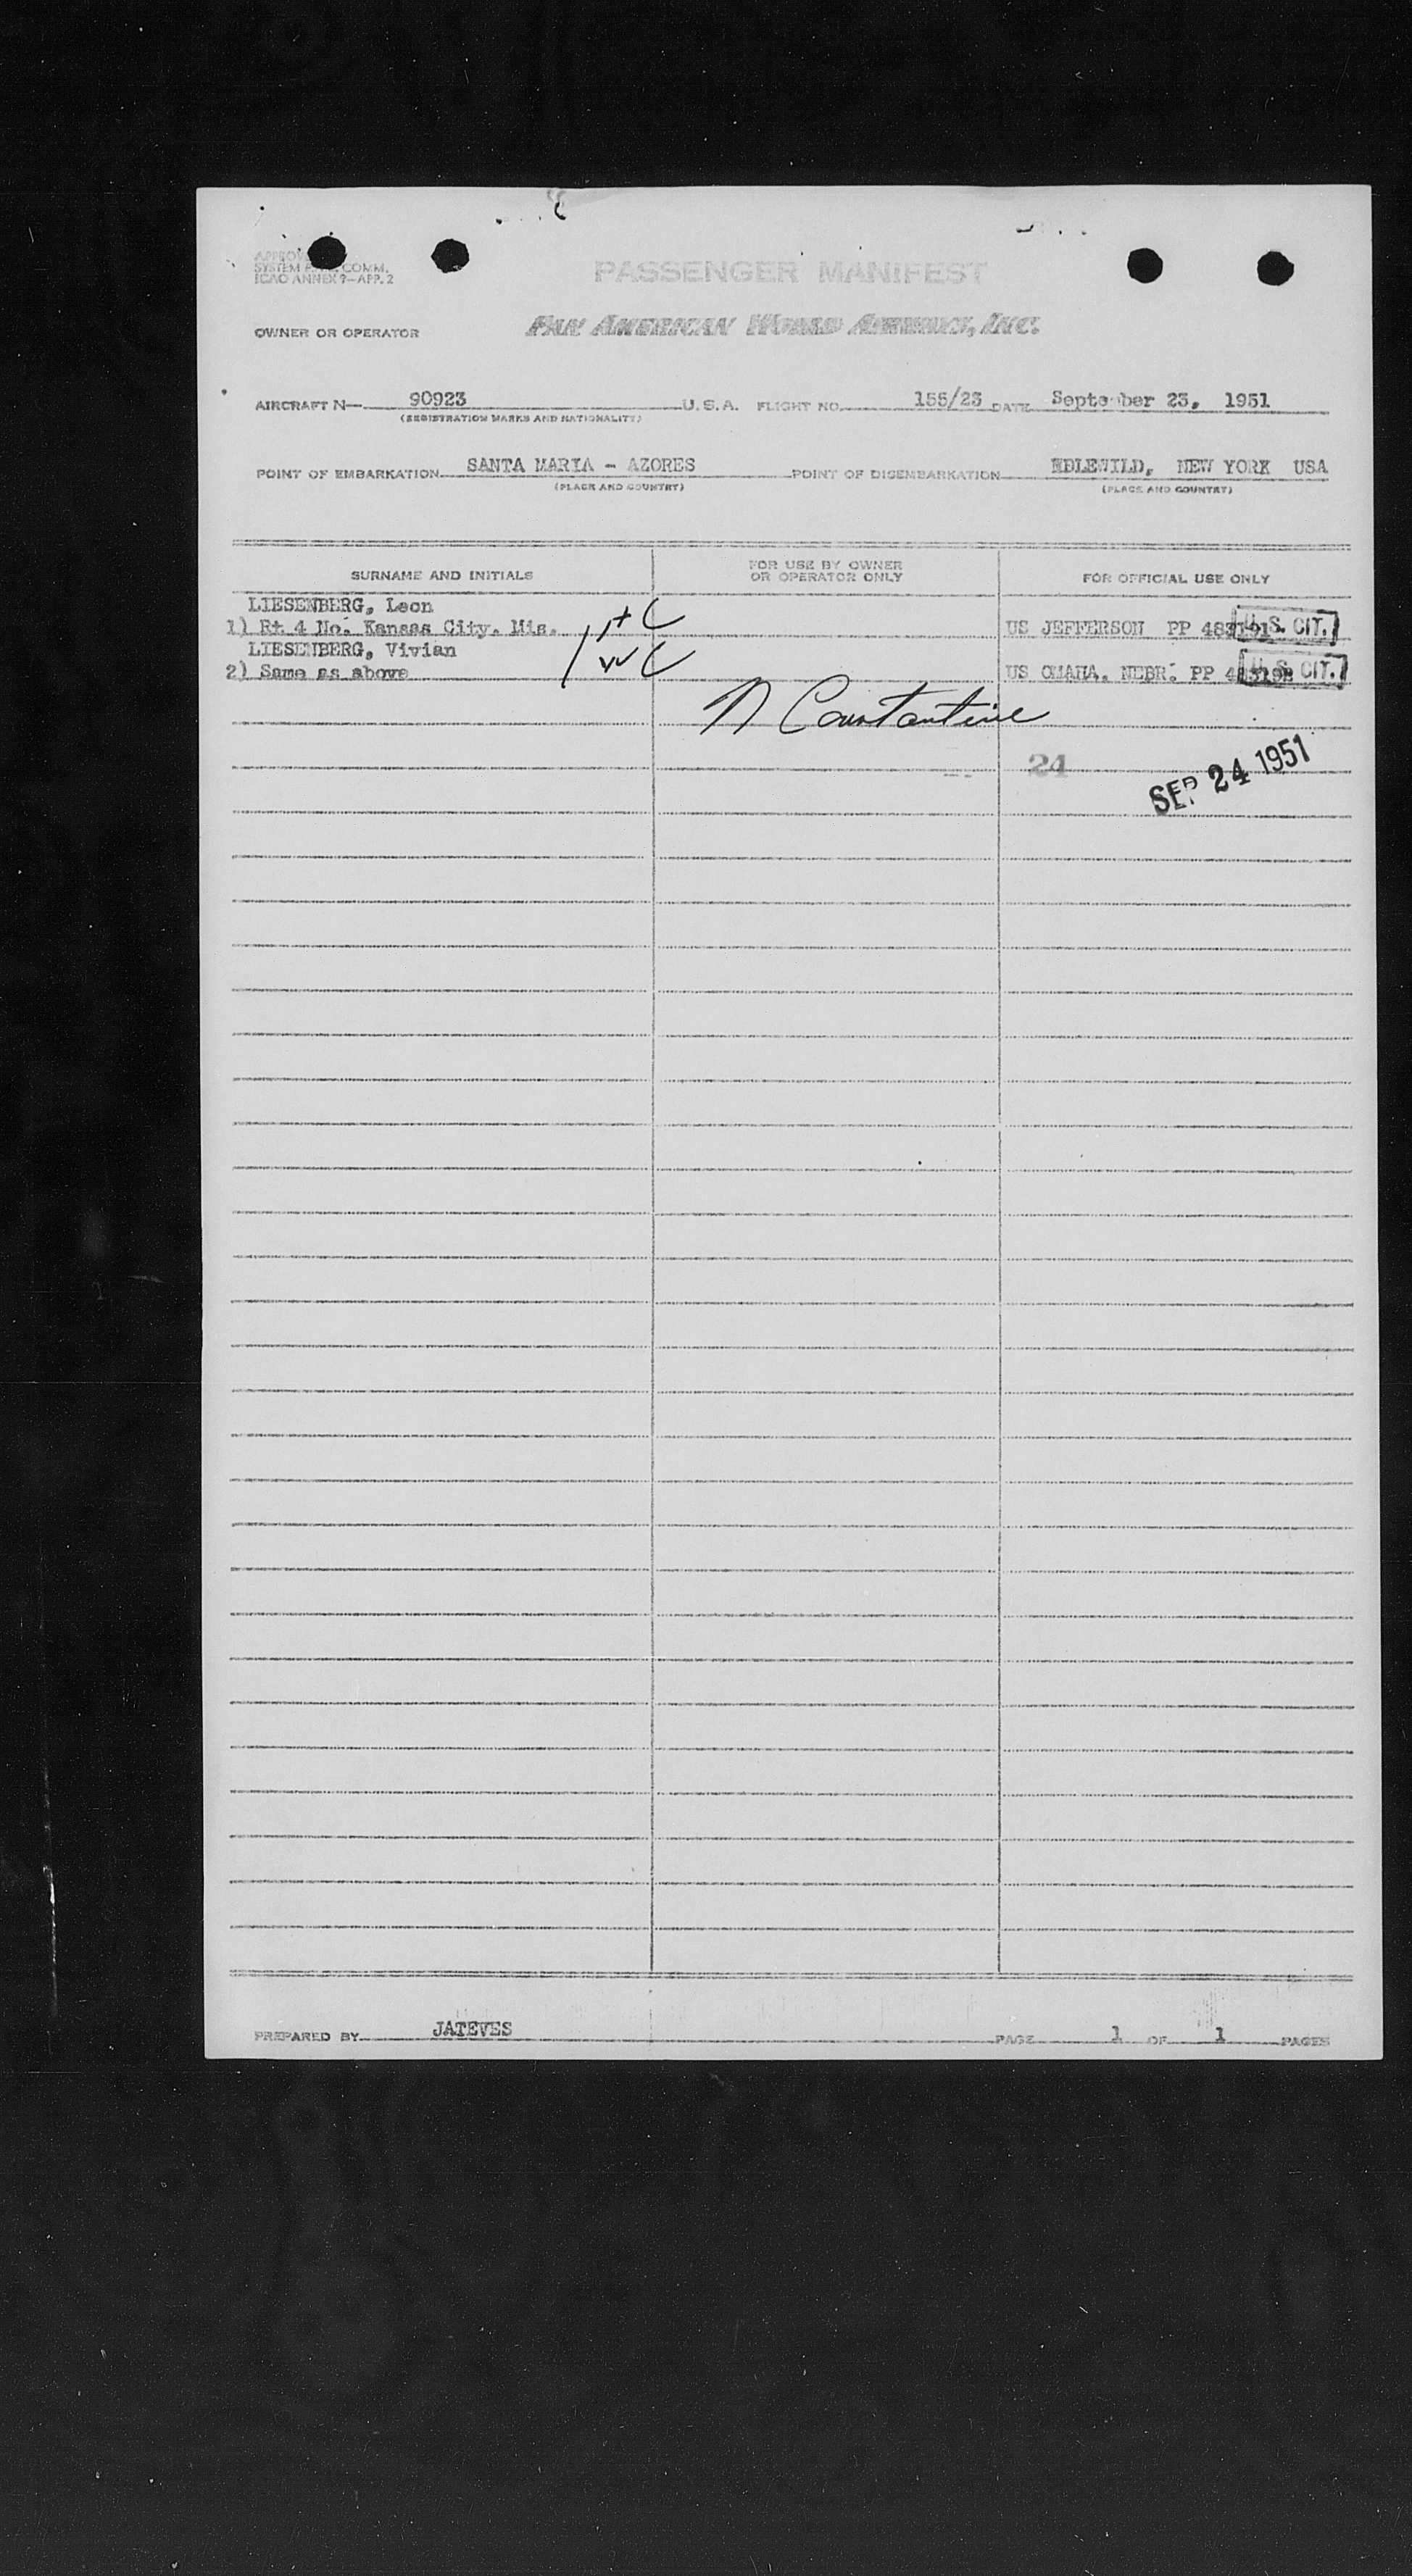 PASSENGER MANIFEST
SYSTEM COMM.
ICAO ANNEX 9—APP. 2
OWNER OR OPERATOR PAN AMERICAN WORLD AIRWAYS, INC.
AIRCRAFT N— 90923 U. S. A. FLIGHT NO. 155/23 DATE September 23, 1951
(REGISTRATION MARKS AND NATIONALITY)
POINT OF EMBARKATION SANTA MARIA - AZORES POINT OF DISEMBARKATION IDLEWILD, NEW YORK USA
(PLACE AND COUNTRY) (PLACE AND COUNTRY)
SURNAME AND INITIALS FOR USE BY OWNER OR OPERATOR ONLY FOR OFFICIAL USE ONLY
LIESENBERG, Leon
1) Rt 4 No. Kansas City. Mis. US JEFFERSON PP U. S. CIT.
LIESENBERG, Vivian
2) Same as above US OMAHA. NEBR. PP U. S. CIT.
N Constantine
24 SEP 24 1951
PREPARED BY JATEVES PAGE 1 OF 1 PAGES